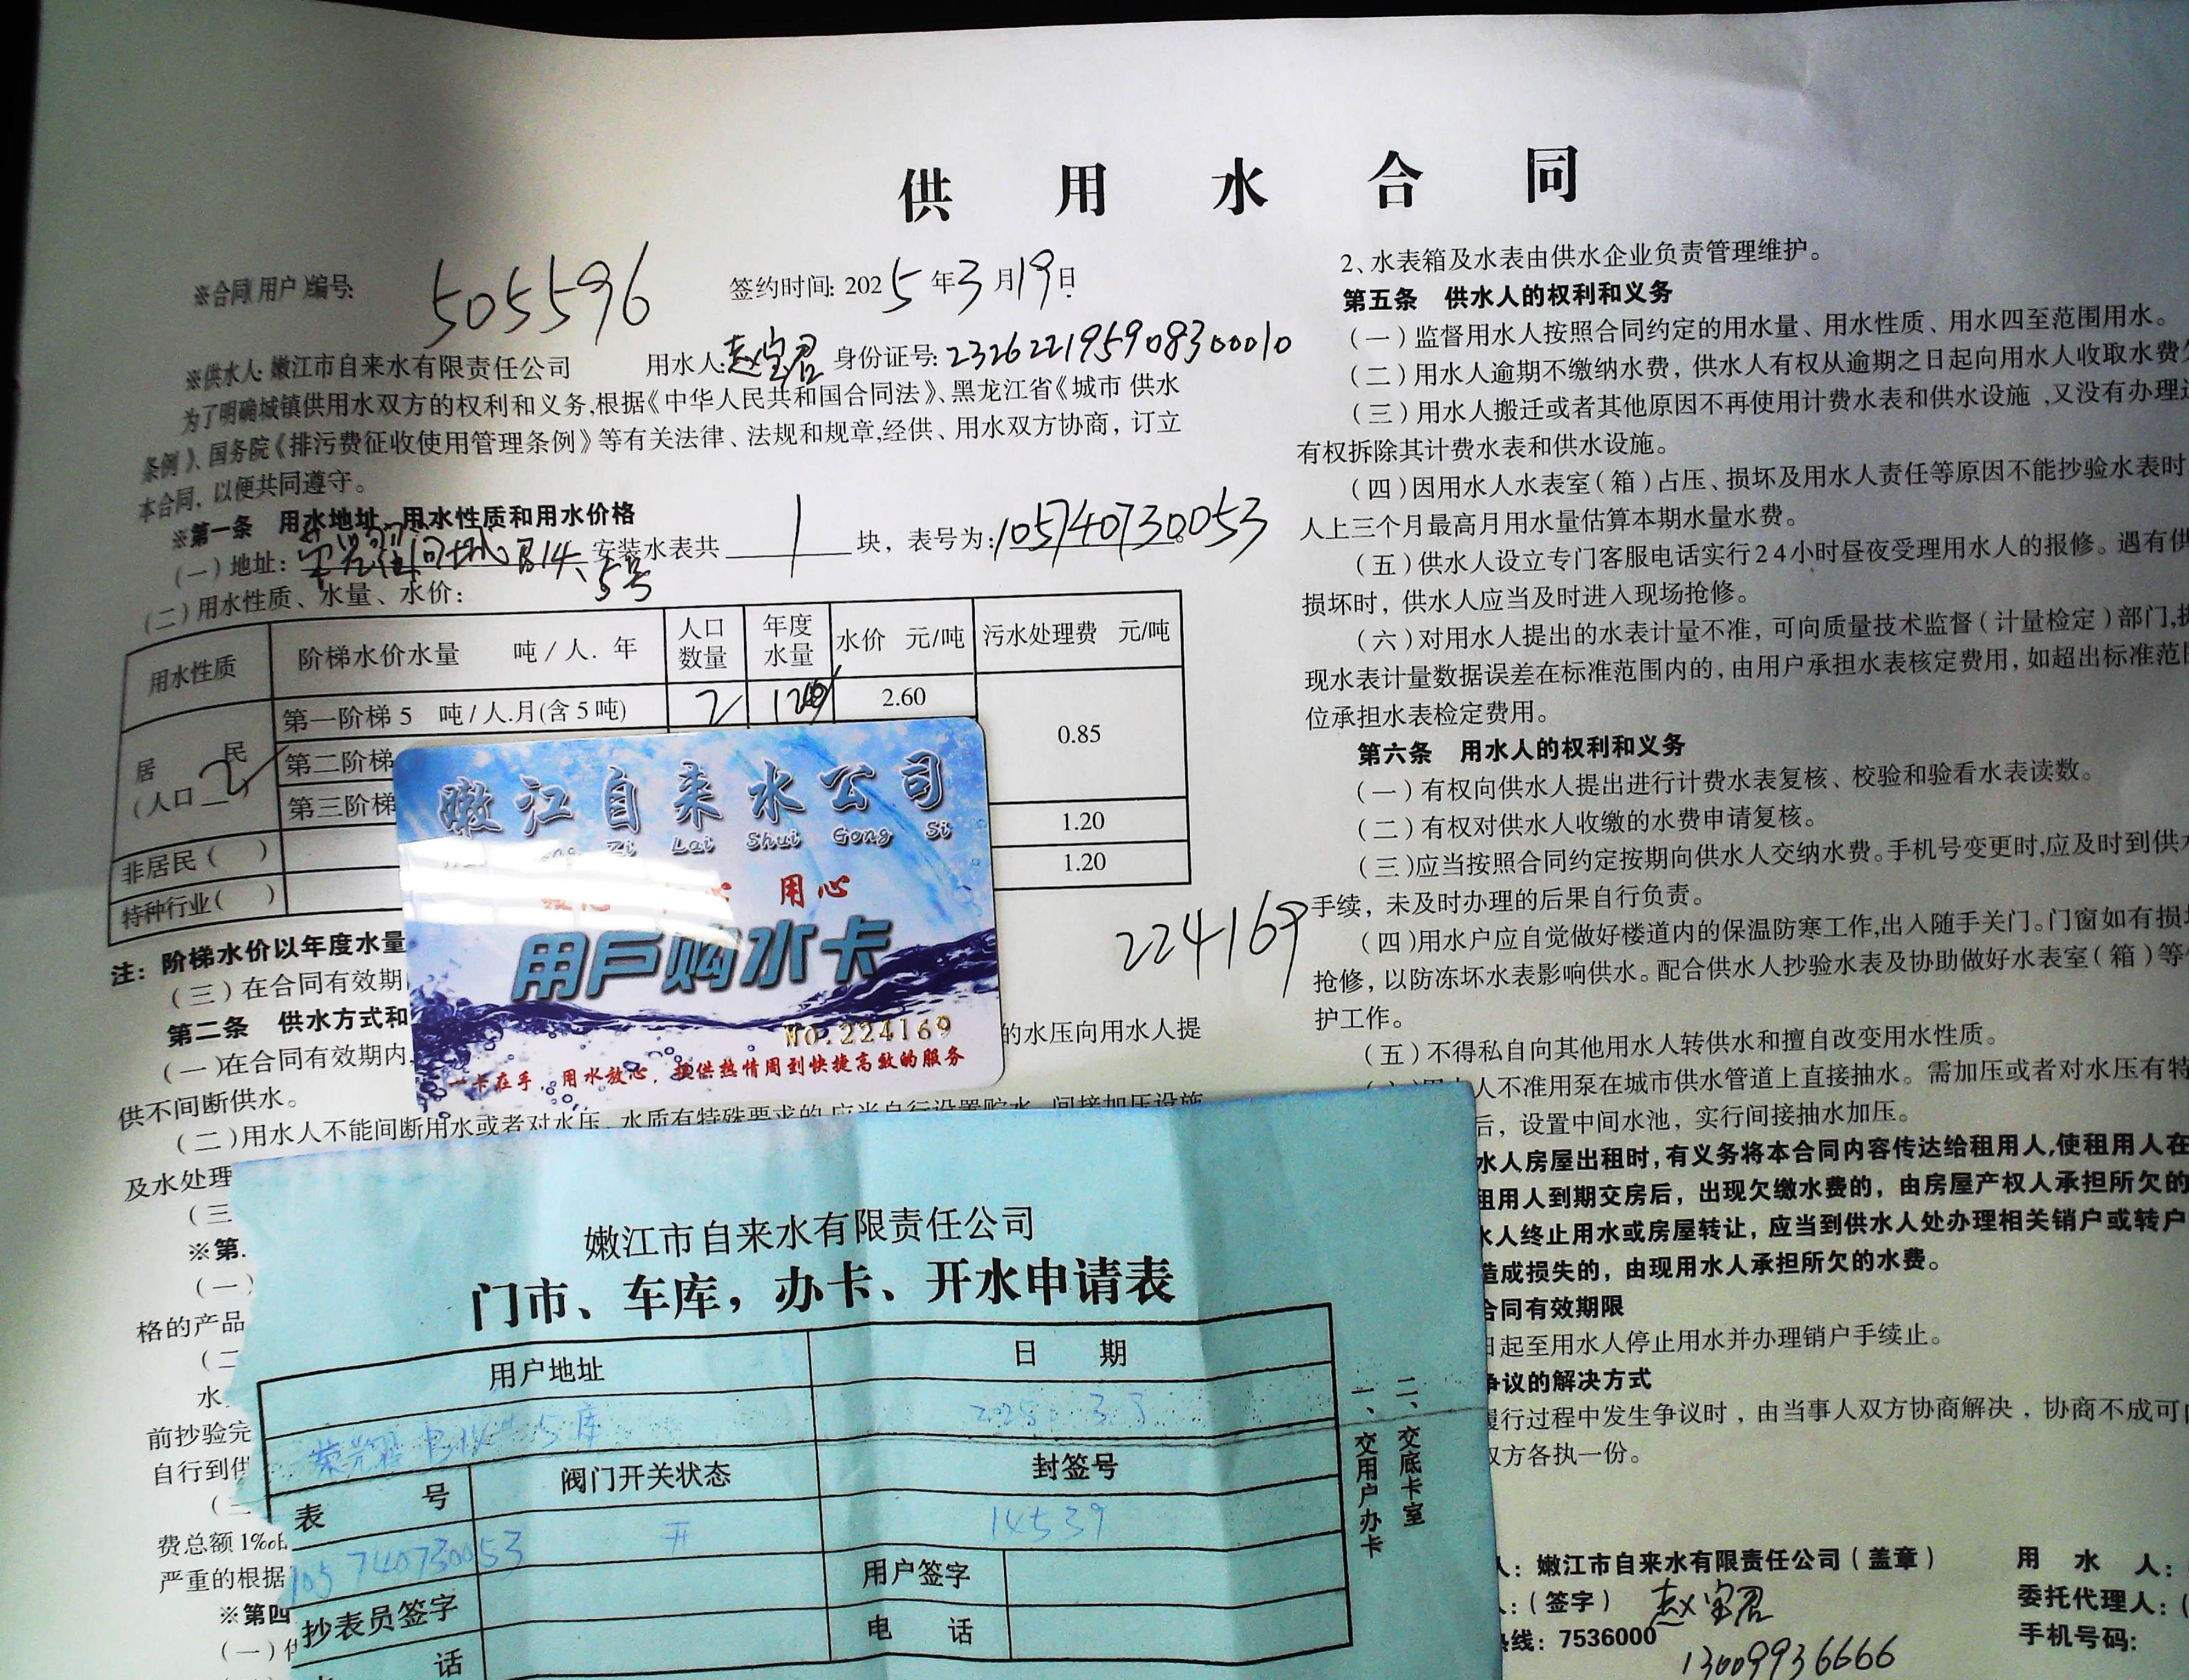 供用水合同
※合同(用户)编号: 505596 签约时间: 2025年3月19日
※供水人: 嫩江市自来水有限责任公司 用水人: 赵宝君 身份证号: 232622195908300010
为了明确城镇供用水双方的权利和义务,根据《中华人民共和国合同法》、黑龙江省《城市 供水
条例》、国务院《排污费征收使用管理条例》等有关法律、法规和规章,经供、用水双方协商，订立
本合同，以便共同遵守。
※第一条 用水地址、用水性质和用水价格
(一)地址: 14 5号 安装水表共 1 块，表号为: 105740730053
(二)用水性质、水量、水价:
用水性质 阶梯水价水量 吨/人.年 人口数量 年度水量 水价 元/吨 污水处理费 元/吨
居民(人口 2) 第一阶梯5 吨/人.月(含5吨) 2 120 2.60 0.85
第二阶梯
第三阶梯
非居民( ) 1.20
特种行业( ) 1.20
注：阶梯水价以年度水量
224169
(三)在合同有效期
第二条 供水方式和
(一)在合同有效期内 的水压向用水人提
供不间断供水。
(二)用水人不能间断用水或者对水压、水质有特殊要求的,应当自行设置贮水、间接加压设施
及水处理
(三
※第
(一)
格的产品
(二
水
前抄验完
自行到供
费总额1‰
严重的根据
※第四
(一)
嫩江自来水公司
Zi Lai Shui Gong Si
用心
用户购水卡
NO.224169
一卡在手，用水放心，提供热情周到快捷高效的服务
嫩江市自来水有限责任公司
门市、车库，办卡、开水申请表
用户地址 日 期
14 5库 2025 3 3
表 号 阀门开关状态 封签号
105740730053 开 14539
抄表员签字 用户签字
话 电 话
一、交用户办卡
二、交底卡室
2、水表箱及水表由供水企业负责管理维护。
第五条 供水人的权利和义务
(一)监督用水人按照合同约定的用水量、用水性质、用水四至范围用水。
(二)用水人逾期不缴纳水费，供水人有权从逾期之日起向用水人收取水费
(三)用水人搬迁或者其他原因不再使用计费水表和供水设施,又没有办理
有权拆除其计费水表和供水设施。
(四)因用水人水表室(箱)占压、损坏及用水人责任等原因不能抄验水表时
人上三个月最高月用水量估算本期水量水费。
(五)供水人设立专门客服电话实行24小时昼夜受理用水人的报修。遇有供
损坏时，供水人应当及时进入现场抢修。
(六)对用水人提出的水表计量不准，可向质量技术监督(计量检定)部门,
现水表计量数据误差在标准范围内的，由用户承担水表核定费用，如超出标准范
位承担水表检定费用。
第六条 用水人的权利和义务
(一)有权向供水人提出进行计费水表复核、校验和验看水表读数。
(二)有权对供水人收缴的水费申请复核。
(三)应当按照合同约定按期向供水人交纳水费。手机号变更时,应及时到供
手续，未及时办理的后果自行负责。
(四)用水户应自觉做好楼道内的保温防寒工作,出入随手关门。门窗如有损
抢修，以防冻坏水表影响供水。配合供水人抄验水表及协助做好水表室(箱)等
护工作。
(五)不得私自向其他用水人转供水和擅自改变用水性质。
人不准用泵在城市供水管道上直接抽水。需加压或者对水压有特
后，设置中间水池，实行间接抽水加压。
水人房屋出租时,有义务将本合同内容传达给租用人,使租用人在
租用人到期交房后，出现欠缴水费的，由房屋产权人承担所欠的
水人终止用水或房屋转让，应当到供水人处办理相关销户或转户
造成损失的，由现用水人承担所欠的水费。
合同有效期限
日起至用水人停止用水并办理销户手续止。
争议的解决方式
履行过程中发生争议时，由当事人双方协商解决，协商不成可
双方各执一份。
人：嫩江市自来水有限责任公司(盖章) 用 水 人：
人：(签字) 赵宝君 委托代理人：(
热线：7536000 13009936666 手机号码：